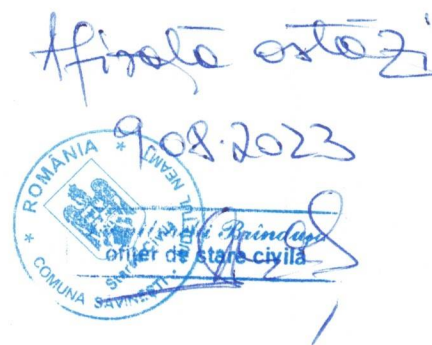 Afișată astăzi
9.08.2023
* ROMÂNIA * JUDEȚUL NEAMȚ
COMUNA SAVINEȘTI
Stare civilă
Brîndușa
ofițer de stare civilă